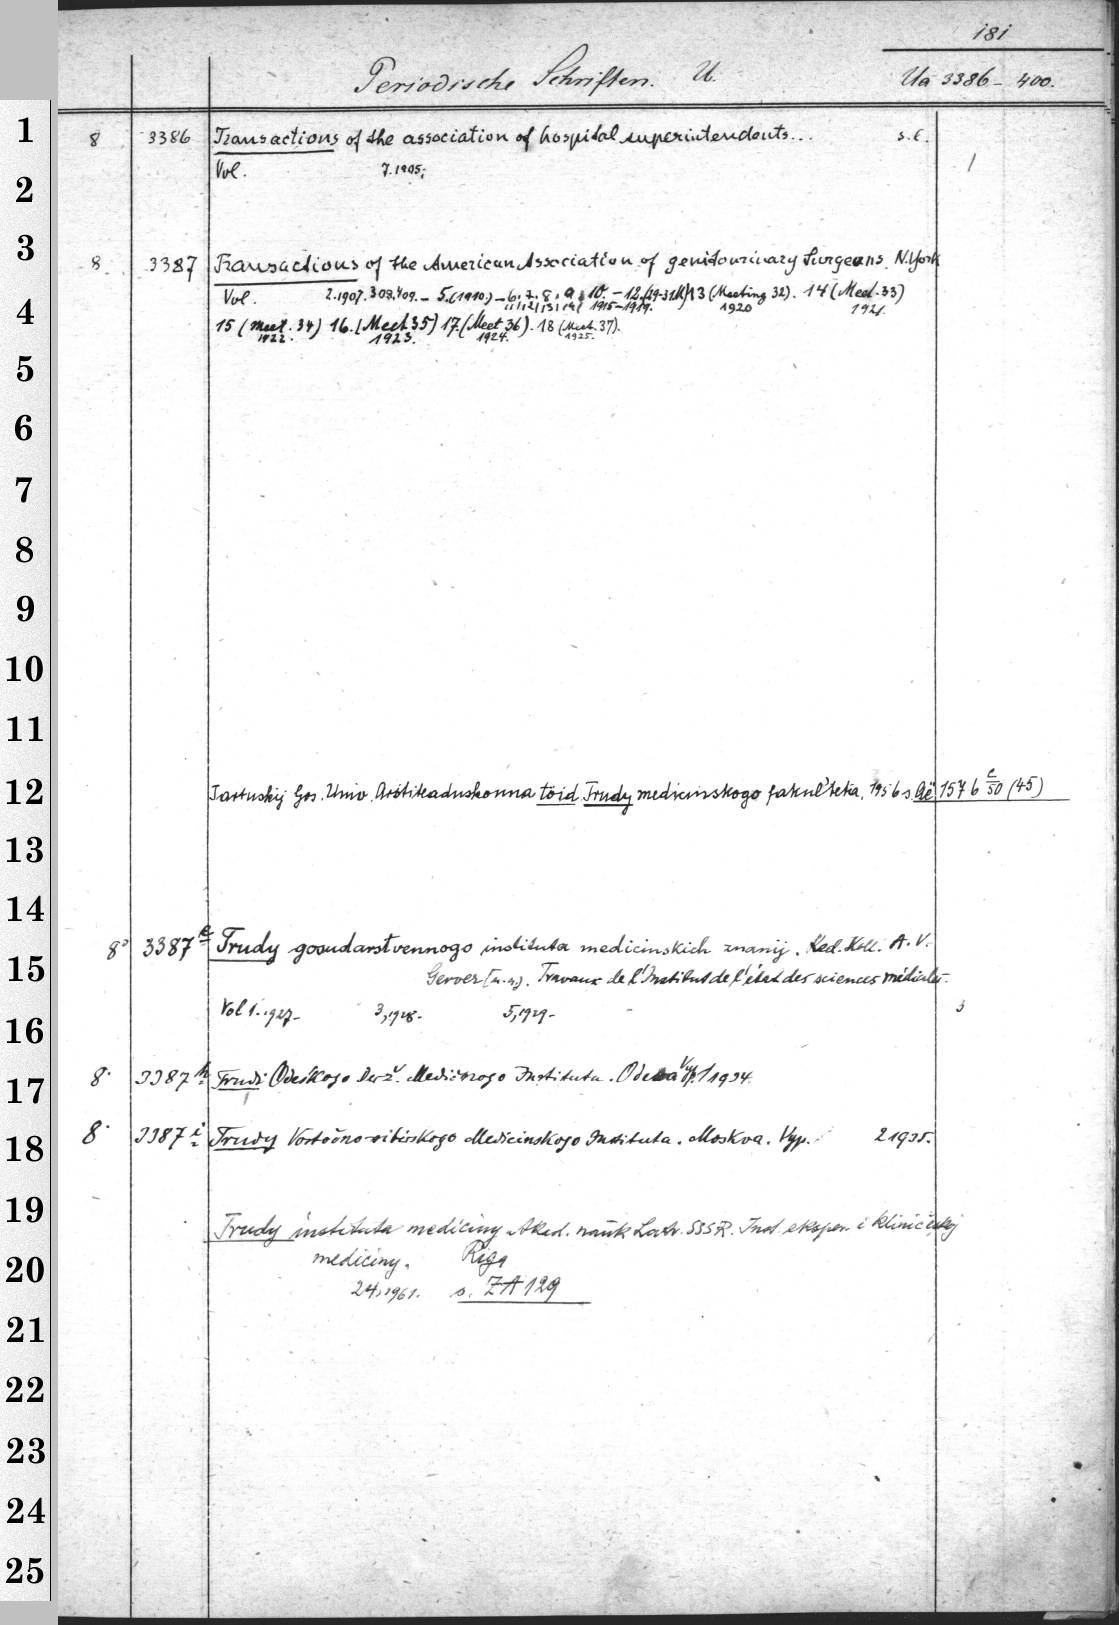 181
Periodische Schriften. U. Ua 3386-400.
1
8 3386 Transactions of the association of hospital superintendents... s.l.
Vol. 7.1905; 1
2
3
8. 3387 Transactions of the American Association of genitourinary Surgeons. N.York
4
Vol. 2.1907. 3.08. 4.09. - 5.(1910.) - 6. 7. 8. 9. 10. - 12. (29-31M) 13 (Meeting 32). 14 (Meet. 33)
11 12 13 14 1915-1919. 1920 1921.
15 (Meet. 34) 16. (Meet 35) 17. (Meet 36). 18 (Meet. 37).
1922. 1923. 1924. 1925.
5
6
7
8
9
10
11
12
Tartuskij Gos. Univ. Arstiteaduskonna toid Trudy medicinskogo fakul'teta, 1956 s. 1576 50 (45)
13
14
8° 3387 e Trudy gosudarstvennogo instituta medicinskich znanij. Red. Koll. A. V.
15
Gerver [u.a.]. Travaux de l'Institut de l'état des sciences médicales.
Vol 1..1927- 3,1928- 5,1929-
16
17
8. 3387 h Trudi Odeśkogo Derž. Medičnogo Instituta. Odessa Vyp. 1 1934.
18
8. 3387 i Trudy Vostočno-sibirskogo Medicinskogo Instituta. Moskva. Vyp. 2 1935.
19
Trudy instituta mediciny Akad. nauk Latv. SSSR. Inst. eksper. i kliničeskoj
20
mediciny. Riga
24,1961. s. ZA 129
21
22
23
24
25